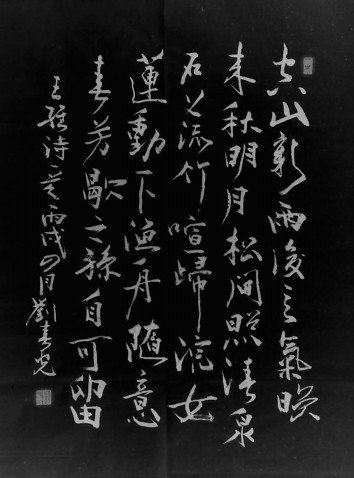 空山新雨後天氣晚
来秋明月松間照清泉
石上流竹喧歸浣女
蓮動下漁舟随意
春芳歇王孫自可留
王維诗 丙戌四月劉春